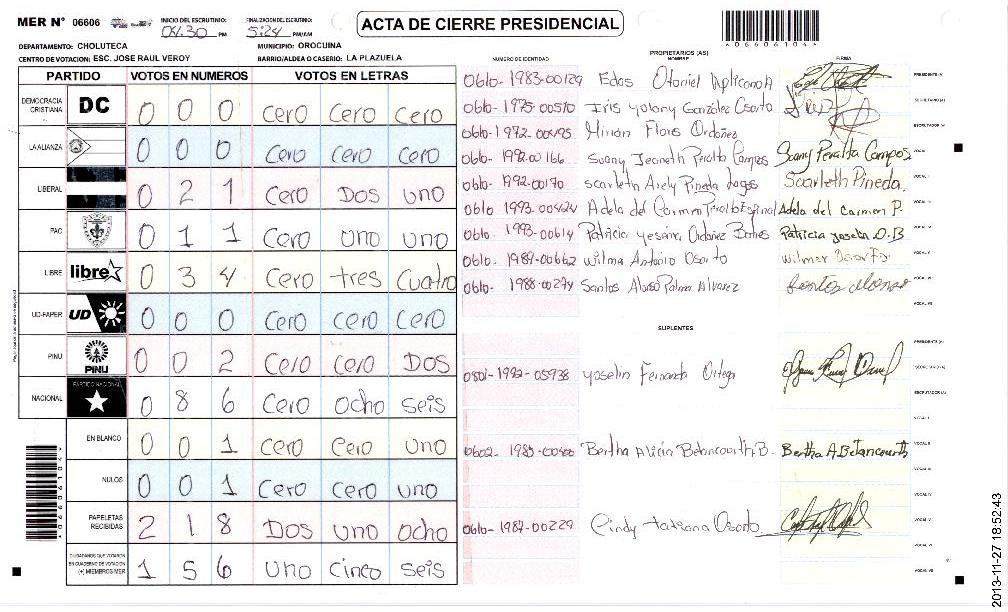 MER N° 06606 INICIO DEL ESCRUTINIO: 04.30 PM FINALIZACION DEL ESCRUTINIO: 5:24 PM/AM
ACTA DE CIERRE PRESIDENCIAL
DEPARTAMENTO: CHOLUTECA MUNICIPIO: OROCUINA
CENTRO DE VOTACION: ESC. JOSE RAUL VEROY BARRIO/ALDEA O CASERIO: LA PLAZUELA
*06606104*
PARTIDO VOTOS EN NUMEROS VOTOS EN LETRAS
DEMOCRACIA CRISTIANA DC 0 0 0 Cero Cero Cero
LA ALIANZA 0 0 0 Cero Cero Cero
LIBERAL 0 2 1 Cero DOS uno
PAC 0 1 1 Cero uno uno
LIBRE libre 0 3 4 Cero tres Cuatro
UD-FAPER UD 0 0 0 Cero Cero Cero
PINU PINU 0 0 2 Cero Cero DOS
NACIONAL PARTIDO NACIONAL 0 8 6 Cero ocho seis
EN BLANCO 0 0 1 Cero Cero uno
NULOS 0 0 1 Cero Cero uno
PAPELETAS RECIBIDAS 2 1 8 DOS uno ocho
CIUDADANOS QUE VOTARON EN CUADERNO DE VOTACION (+) MIEMBROS MER 1 5 6 uno cinco seis
PROPIETARIOS (AS)
NUMERO DE IDENTIDAD NOMBRE FIRMA
0610-1983-00129 Edas Otoniel Aplicano A PRESIDENTE (A)
0610-1975-00510 Iris yolany González Osorto SECRETARIO (A)
0610-1972-00495 Mirian Flores Ordoñez ESCRUTADOR (A)
0610-1992-00166 Suany Jeaneth Peralta Campos Suany Peralta Campos. VOCAL I
0610-1992-00170 Scarleth Arely Pineda Scarleth Pineda. VOCAL II
0610-1993-00424 Adela del Carmen Peralta Espinal Adela del Carmen P. VOCAL III
0610-1993-00614 Patricia yesenia Ordoñez Patricia yesenia O.B VOCAL IV
0610-1989-00662 Wilmer Antonio Osorto Wilmer Osorto VOCAL V
0610-1988-00274 Santos Alonso Palma Alvarez Santos Alonso VOCAL VI
VOCAL VII
SUPLENTES
PRESIDENTE (A)
0801-1992-05938 yoselin Fernanda Ortega SECRETARIO (A)
ESCRUTADOR (A)
VOCAL I
0602-1985-00400 Bertha Alicia Betancourth B. Bertha A Betancourth VOCAL II
VOCAL III
VOCAL IV
0610-1987-00229 Cindy tatiana Osorto VOCAL V
VOCAL VI
VOCAL VII
2013-11-27 18:52:43